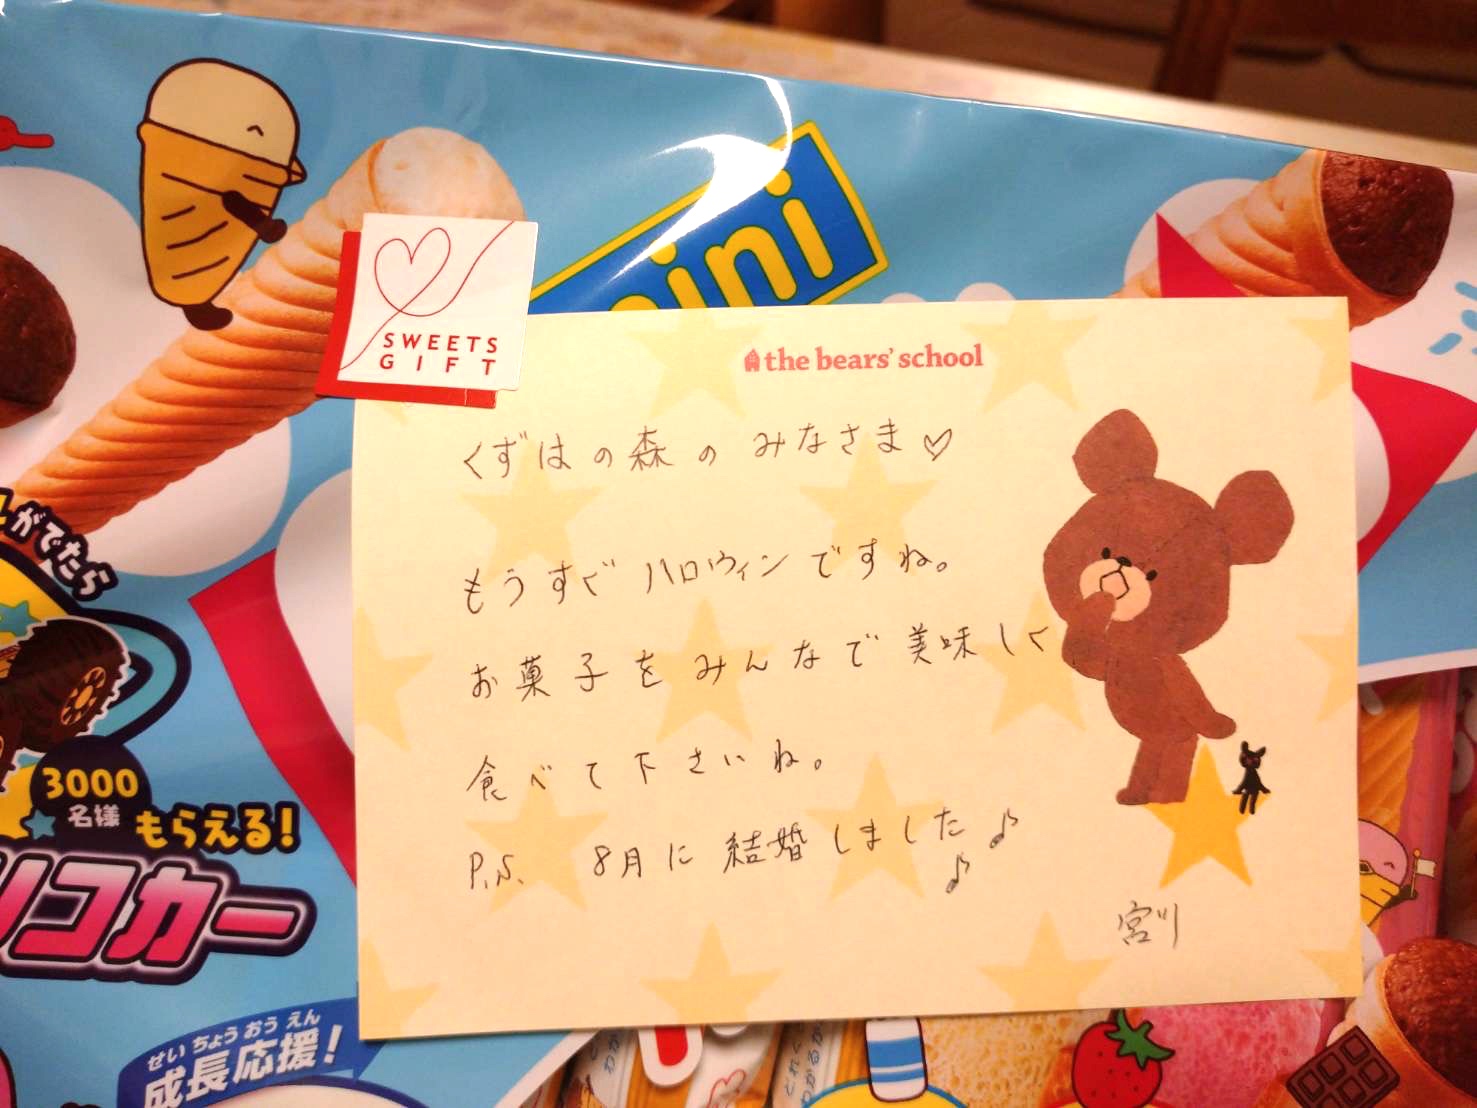 mini
SWEETS
GIFT
the bears' school
くずはの森のみなさま♡
もうすぐハロウィンですね。
お菓子をみんなで美味しく
食べて下さいね。
P.S. 8月に結婚しました♪♪
宮川
がでたら
3000
名様
もらえる!
コカー
せいちょうおうえん
成長応援!